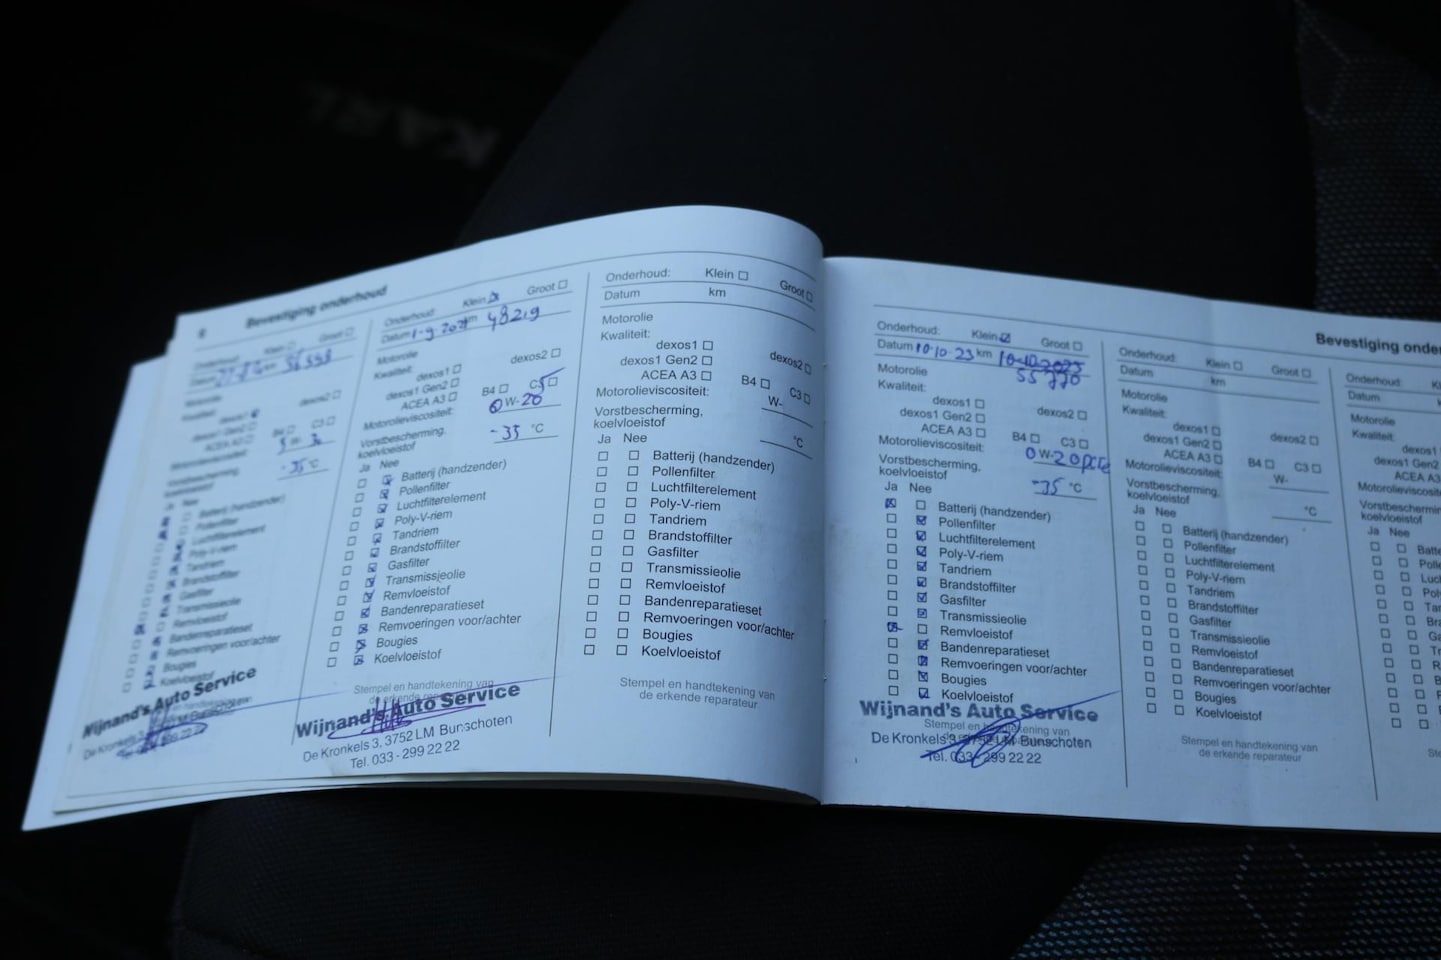 KARL
8 Bevestiging onderhoud
Onderhoud: Klein Groot
Datum km 36998
Motorolie
Kwaliteit:
dexos1 dexos2
dexos1 Gen2
ACEA A3 B4 C3
Motorolieviscositeit: W-
Vorstbescherming,
koelvloeistof -35 °C
Ja Nee
Batterij (handzender)
Pollenfilter
Luchtfilterelement
Poly-V-riem
Tandriem
Brandstoffilter
Gasfilter
Transmissieolie
Remvloeistof
Bandenreparatieset
Remvoeringen voor/achter
Bougies
Koelvloeistof
Wijnand's Auto Service
De Kronkels
Onderhoud: Klein Groot
Datum 1-9-2021 km 48219
Motorolie
Kwaliteit:
dexos1 dexos2
dexos1 Gen2
ACEA A3 B4 C5
Motorolieviscositeit: 0 W-20
Vorstbescherming,
koelvloeistof -35 °C
Ja Nee
Batterij (handzender)
Pollenfilter
Luchtfilterelement
Poly-V-riem
Tandriem
Brandstoffilter
Gasfilter
Transmissieolie
Remvloeistof
Bandenreparatieset
Remvoeringen voor/achter
Bougies
Koelvloeistof
Stempel en handtekening van
de erkende
Wijnand's Auto Service
De Kronkels 3, 3752 LM Bunschoten
Tel. 033 - 299 22 22
Onderhoud: Klein Groot
Datum km
Motorolie
Kwaliteit:
dexos1 dexos2
dexos1 Gen2
ACEA A3 B4 C3
Motorolieviscositeit: W-
Vorstbescherming,
koelvloeistof °C
Ja Nee
Batterij (handzender)
Pollenfilter
Luchtfilterelement
Poly-V-riem
Tandriem
Brandstoffilter
Gasfilter
Transmissieolie
Remvloeistof
Bandenreparatieset
Remvoeringen voor/achter
Bougies
Koelvloeistof
Stempel en handtekening van
de erkende reparateur
Bevestiging onder
Onderhoud: Klein Groot
Datum 10-10-23 km 10-10-2023
Motorolie 55770
Kwaliteit:
dexos1 dexos2
dexos1 Gen2
ACEA A3 B4 C3
Motorolieviscositeit: 0 W-20
Vorstbescherming,
koelvloeistof -35 °C
Ja Nee
Batterij (handzender)
Pollenfilter
Luchtfilterelement
Poly-V-riem
Tandriem
Brandstoffilter
Gasfilter
Transmissieolie
Remvloeistof
Bandenreparatieset
Remvoeringen voor/achter
Bougies
Koelvloeistof
Wijnand's Auto Service
Stempel en handtekening van
De Kronkels 3, 3752 LM Bunschoten
Tel. 033 - 299 22 22
Onderhoud: Klein Groot
Datum km
Motorolie
Kwaliteit:
dexos1 dexos2
dexos1 Gen2
ACEA A3 B4 C3
Motorolieviscositeit: W-
Vorstbescherming,
koelvloeistof °C
Ja Nee
Batterij (handzender)
Pollenfilter
Luchtfilterelement
Poly-V-riem
Tandriem
Brandstoffilter
Gasfilter
Transmissieolie
Remvloeistof
Bandenreparatieset
Remvoeringen voor/achter
Bougies
Koelvloeistof
Stempel en handtekening van
de erkende reparateur
Onderhoud: K
Datum
Motorolie
Kwaliteit:
dexos1
dexos1 Gen
ACEA A3
Motorolieviscositeit
Vorstbescherming,
koelvloeistof
Ja Nee
Batte
Polle
Luc
Po
Ta
Bra
Ga
T
R
B
R
B
K